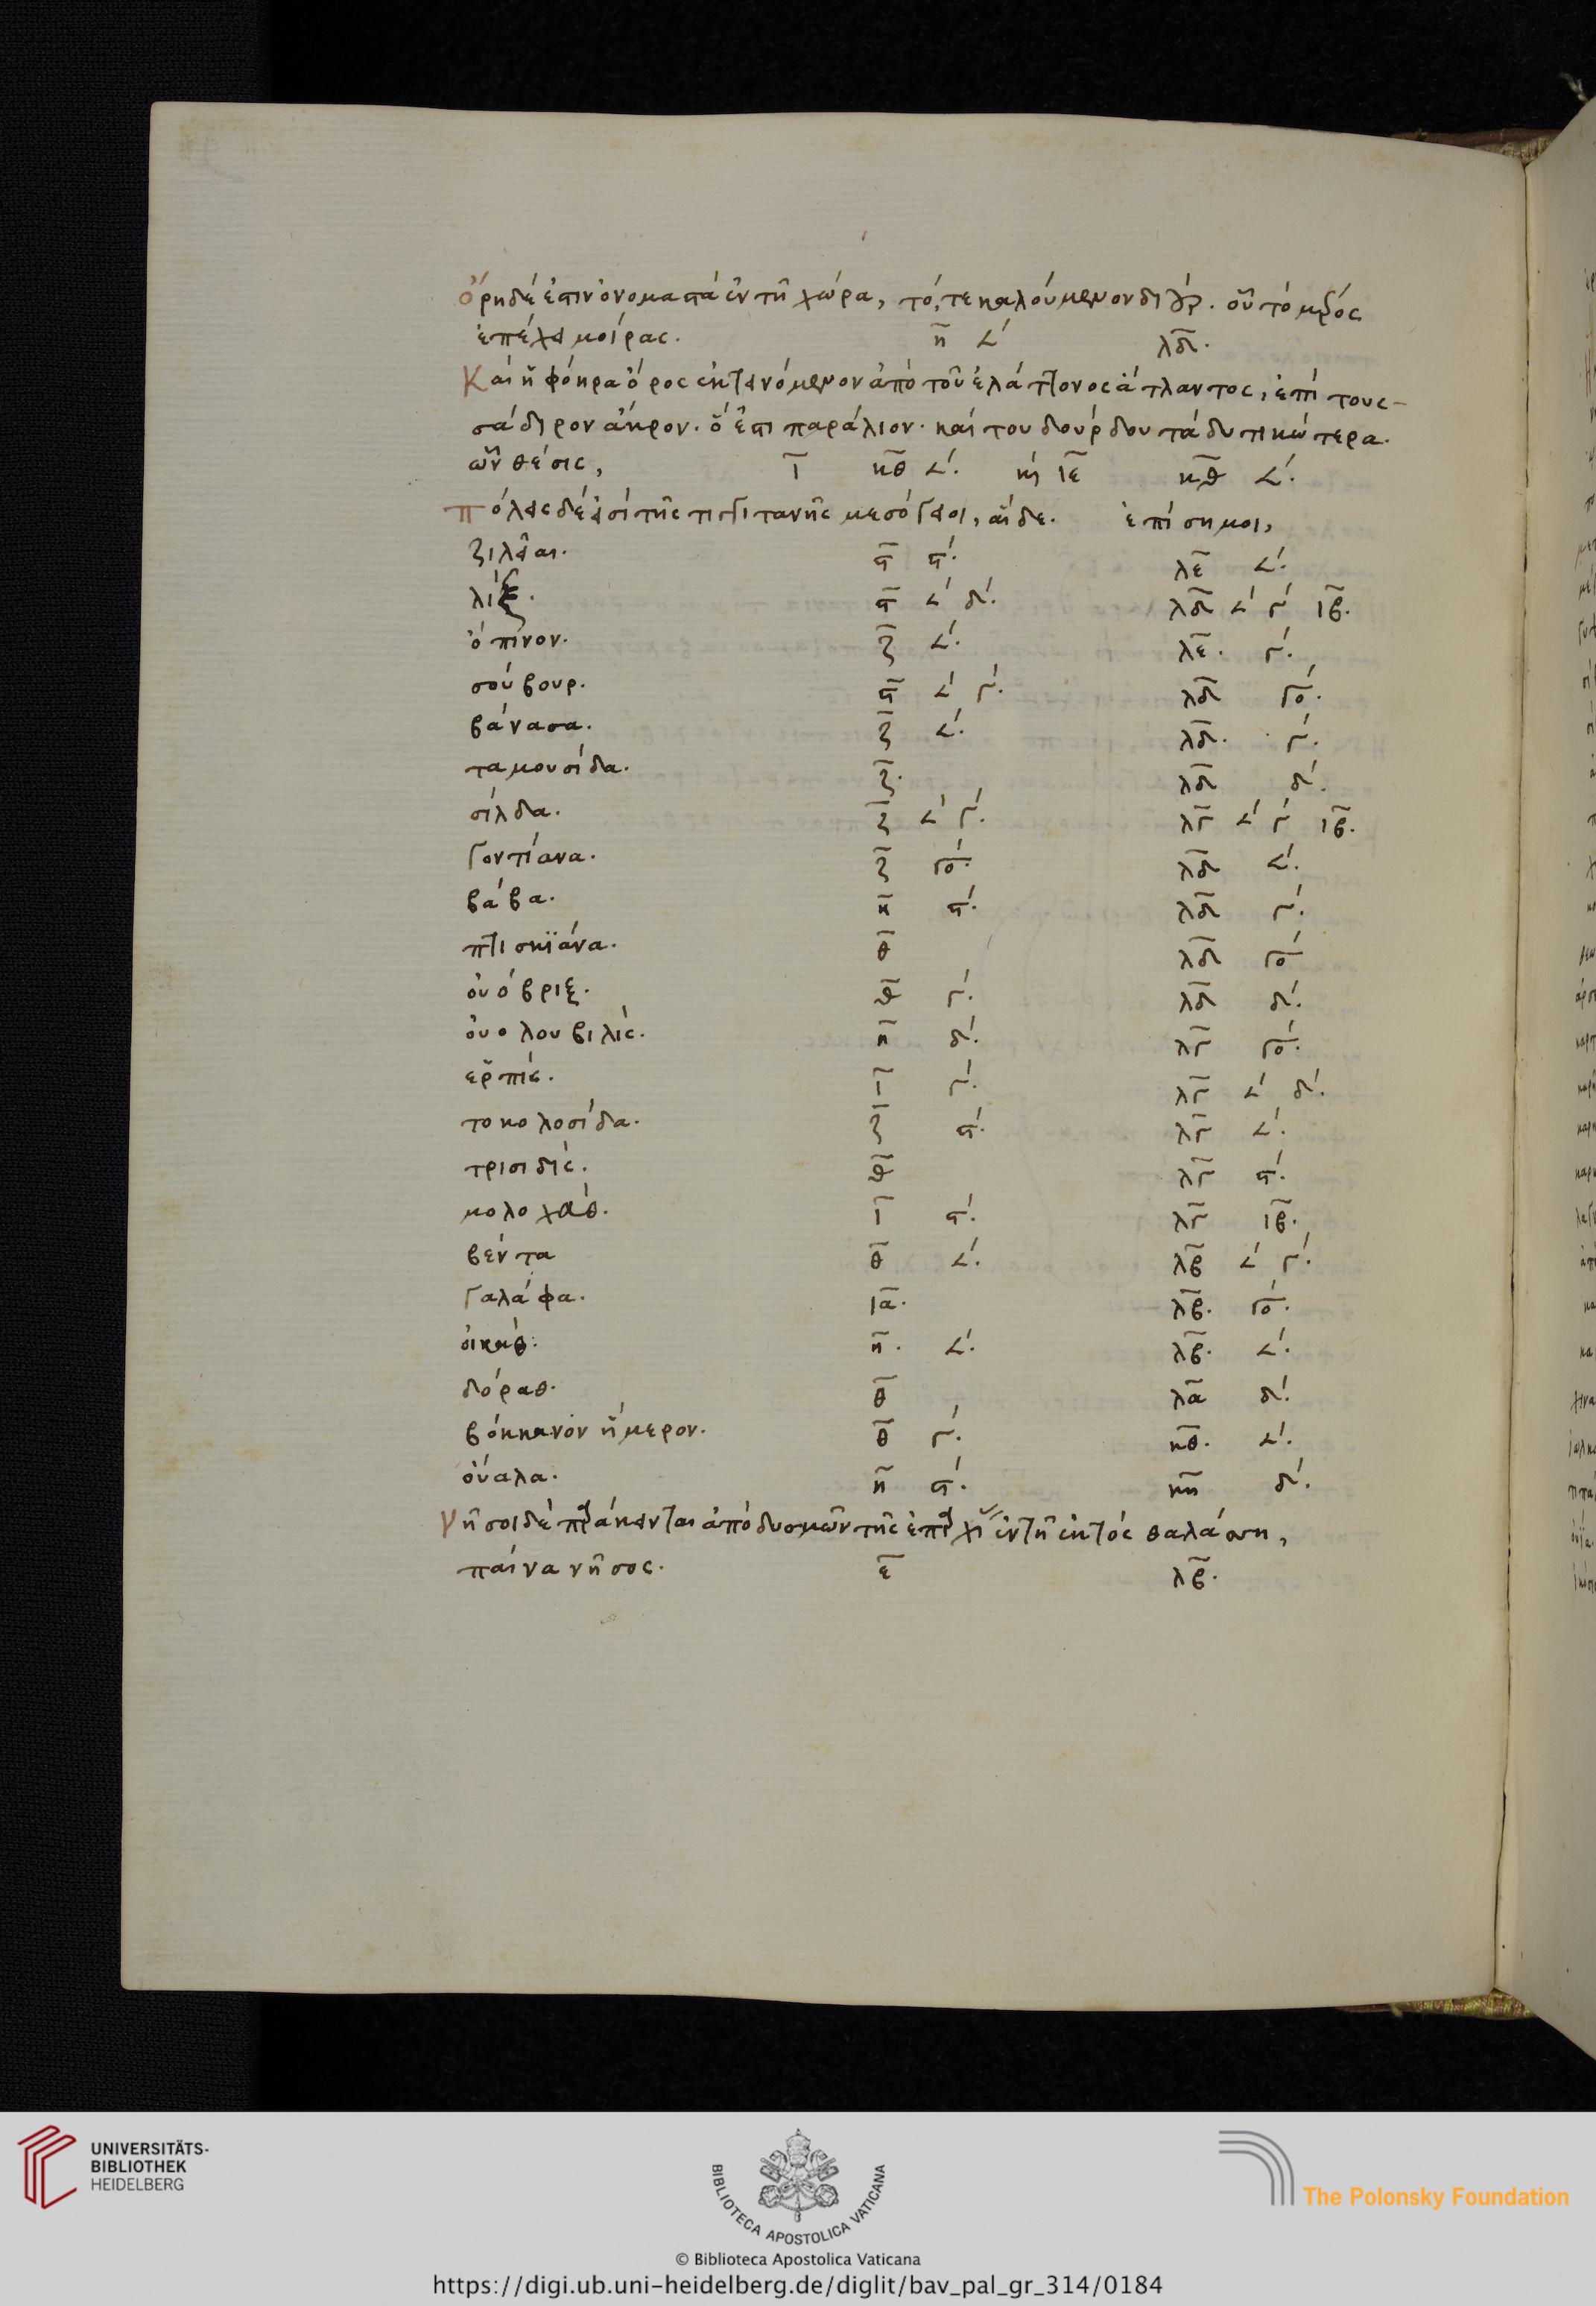 Ὄρη δέ ἐστιν ὀνομαστά ἐν τῆ χώρα, τό, τε καλούμενον διούρ. οὗ τό μέσος
ἐπέχει μοίρας. η ∠ʹ λδ.
Καί ἡ φόκρα ὄρος ἐκτεινόμενον ἀπό τοῦ ἐλάττονος ἄτλαντος, ἐπί τους
σάδιρον ἄκρον. ὅ ἐστι παράλιον. καί του δούρδου τά δυτικώτερα.
ὧν θέσις, ι κθ ∠ʹ. κ ιε κθ ∠ʹ.
πόλεις δέ εἰσί τῆς τιγγιτανῆς μεσόγειοι, αἵδε. ἐπίσημοι,
ζιλεῖαι. ϛ ϛʹ. λε ∠ʹ.
λίξ. ϛ ∠ʹ δʹ. λδ ∠ʹ γʹ ιβ.
ὀπίνον. ζ ∠ʹ. λε. γʹ.
σούβουρ. ϛ ∠ʹ γʹ. λδ γο.
βάνασα. ζ ∠ʹ. λδ. γʹ.
ταμουσίδα. ζ. λδ δʹ.
σίλδα. ζ ∠ʹ γʹ. λγ ∠ʹ γʹ ιβ.
γοντίανα. ζ γο. λδ ∠ʹ.
βάβα. η ϛʹ. λδ γʹ.
πτισκϊάνα. θ λδ γο
οὐόβριξ. θ γʹ. λδ δʹ.
οὐολουβιλίς. η δʹ. λγ γο.
ἑρπίς. ι γʹ. λγ ∠ʹ δʹ.
τοκολοσίδα. ζ ϛʹ. λγ ∠ʹ.
τρισιδίς. θ λγ ϛʹ.
μολοχάθ. ι ϛʹ. λγ ιβ.
βέντα θ ∠ʹ. λβ ∠ʹ γʹ.
γαλάφα. ια. λβ. γο.
οἰκάθ. η. ∠ʹ. λβ. ∠ʹ.
δόραθ. θ λα δʹ.
βόκκανόν ἥμερον. θ γʹ. κθ. ∠ʹ.
οὐαλα. η ϛʹ. κη δʹ.
νῆσοι δέ παράκεινται ἀπό δυσμῶν τῆς ἐπαρχι ἐν τῆ ἐκτός θαλάσση,
παίνα νῆσος. ε λβ.
UNIVERSITÄTS-
BIBLIOTHEK
HEIDELBERG
BIBLIOTECA APOSTOLICA VATICANA
The Polonsky Foundation
© Biblioteca Apostolica Vaticana
https://digi.ub.uni-heidelberg.de/diglit/bav_pal_gr_314/0184